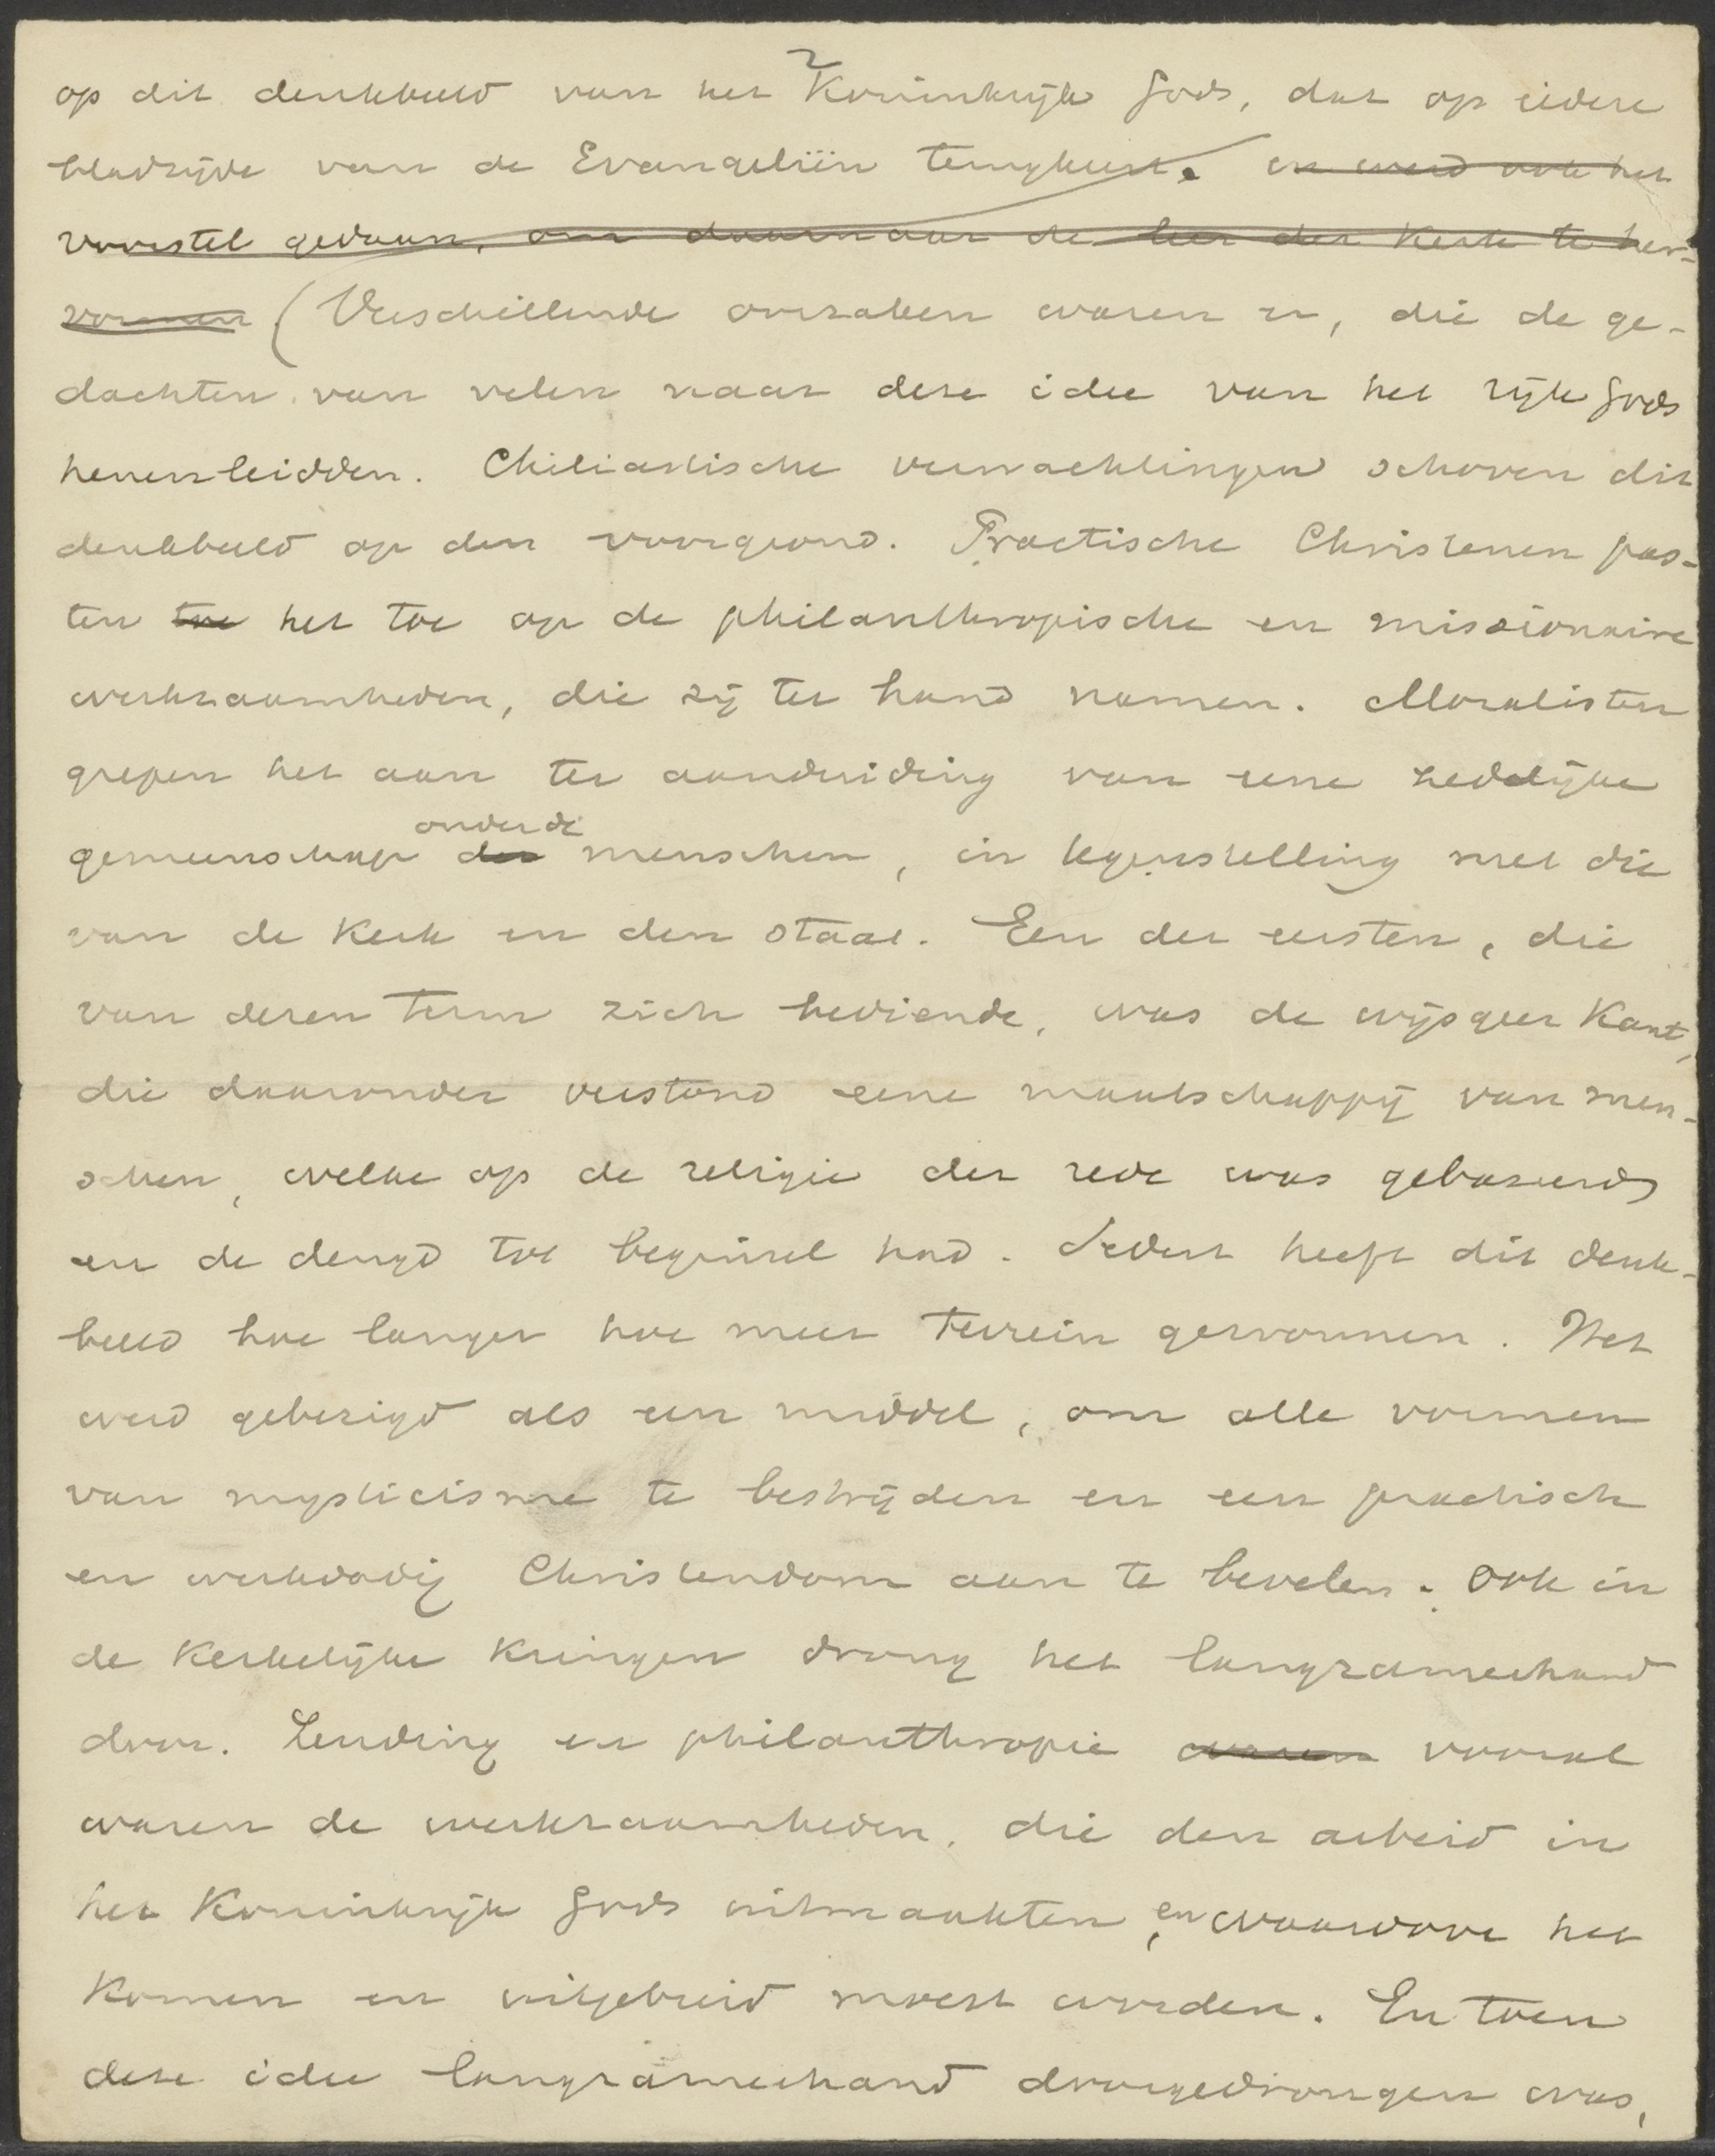 2
op dit denkbeeld van het Koninkrijk Gods, dat op iedere
bladzijde van de Evangeliën terugkeert. en werd ook het
voorstel gedaan, om daarnaar de leer der Kerk te her-
vormen (Verschillende oorzaken waren er, die de ge-
dachten van velen naar deze idee van het rijk Gods
henenleidden. Chiliastische verwachtingen schoven dit
denkbeeld op den voorgrond. Practische Christenen pas-
ten toe het toe op de philanthropische en missionaire
werkzaamheden, die zij ter hand namen. Moralisten
grepen het aan ter aanduiding van eene zedelijke
onder de
gemeenschap der menschen, in tegenstelling met die
van de Kerk en den staat. Een der eersten, die
van dezen term zich bediende, was de wijsgeer Kant,
die daaronder verstond eene maatschappij van men-
schen, welke op de religie der rede was gebaseerd
en de deugd tot beginsel had. Sedert heeft dit denk-
beeld hoe langer hoe meer terrein gewonnen. Het
werd gebezigd als een middel, om alle vormen
van mysticisme te bestrijden en een practisch
en werkdadig Christendom aan te bevelen. Ook in
de Kerkelijke Kringen drong het langzamerhand
door. Zending en philanthropie waren vooral
waren de werkzaamheden, die den arbeid in
het Koninkrijk Gods uitmaakten, en waardoor het
Komen en uitgebreid moest worden. En toen
deze idee langzamerhand doorgedrongen was,